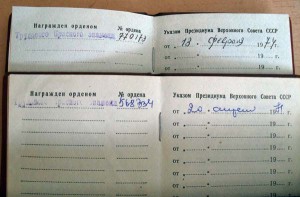 Награжден орденом № ордена
Трудового Красного Знамени 770173
Указом Президиума Верховного Совета СССР
от " 13 " февраля 1974 г.
от " " 19 г.
от " " 19 г.
Награжден орденом № ордена
Трудового Красного Знамени
Указом Президиума Верховного Совета СССР
от " 20 " апреля 1971 г.
от " " 19 г.
от " " 19 г.
от " " 19 г.
от " " 19 г.
от " " 19 г.